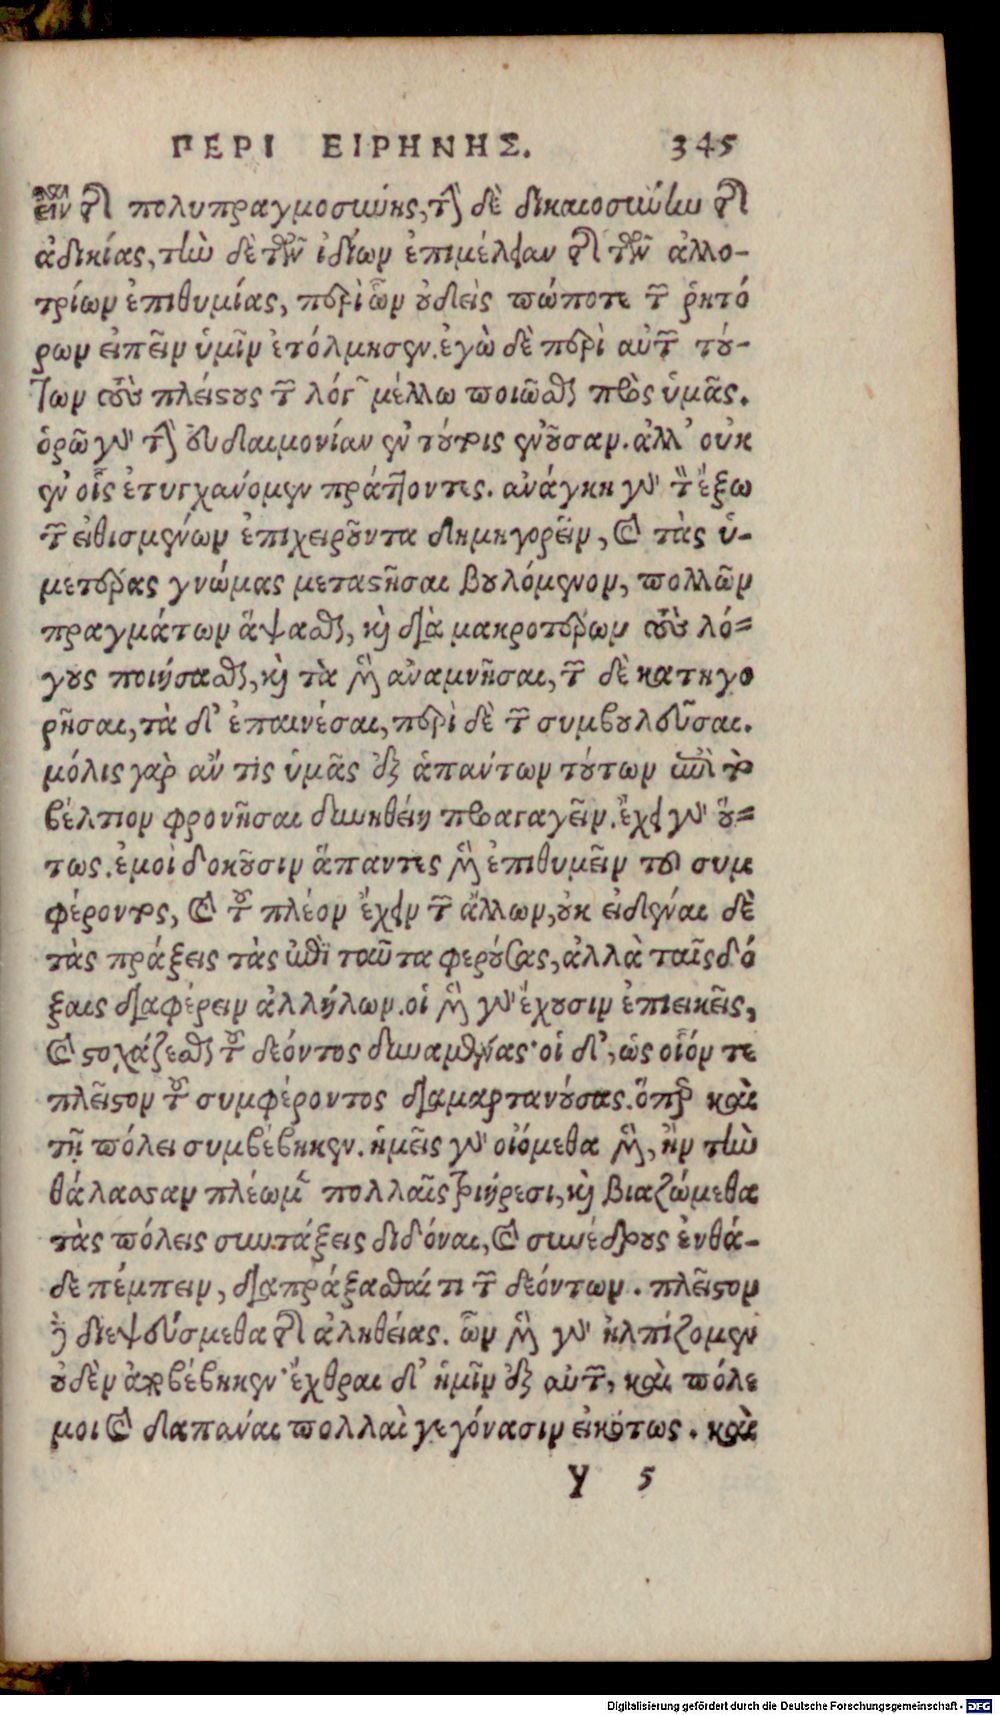 ΠΕΡΙ ΕΙΡΗΝΗΣ. 345
εῖν τῆς πολυπραγμοσύνης, τὴν δὲ δικαιοσύνην τῆς
ἀδικίας, τὴν δὲ τῶν ἰδίων ἐπιμέλειαν τῆς τῶν ἀλλο-
τρίων ἐπιθυμίας, περὶ ὧν οὐδεὶς πώποτε τῶν ῥητό
ρων εἰπεῖν ὑμῖν ἐτόλμησεν. ἐγὼ δὲ περὶ αὐτῶν τού-
των τοὺς πλείστους τῶν λόγων μέλλω ποιεῖσθαι πρὸς ὑμᾶς.
ὁρῶ γὰρ τὴν εὐδαιμονίαν ἐν τούτοις ἐνοῦσαν. ἀλλ' οὐκ
ἐν οἷς ἐτυγχάνομεν πράττοντες. ἀνάγκη γὰρ τὸν ἔξω
τῶν εἰθισμένων ἐπιχειροῦντα δημηγορεῖν, καὶ τὰς ὑ-
μετέρας γνώμας μεταστῆσαι βουλόμενον, πολλῶν
πραγμάτων ἅψασθαι, καὶ διὰ μακροτέρων τοὺς λό=
γους ποιήσασθαι, καὶ τὰ μὲν ἀναμνῆσαι, τῶν δὲ κατηγο
ρῆσαι, τὰ δ' ἐπαινέσαι, περὶ δὲ τῶν συμβουλεῦσαι.
μόλις γὰρ ἄν τις ὑμᾶς ἐξ ἁπάντων τούτων ἐπὶ τὸ
βέλτιον φρονῆσαι δυνηθείη προαγαγεῖν. ἔχει γὰρ οὕ=
τως. ἐμοὶ δοκοῦσιν ἅπαντες μὲν ἐπιθυμεῖν τοῦ συμ
φέροντος, καὶ τοῦ πλέον ἔχειν τῶν ἄλλων, οὐκ εἰδέναι δὲ
τὰς πράξεις τὰς ἐπὶ ταῦτα φερούσας, ἀλλὰ ταῖς δό
ξαις διαφέρειν ἀλλήλων. οἱ μὲν γὰρ ἔχουσιν ἐπιεικεῖς,
καὶ στοχάζεσθαι τοῦ δέοντος δυναμένας· οἱ δ', ὡς οἷόν τε
πλεῖστον τοῦ συμφέροντος διαμαρτανούσας. ὅπερ καὶ
τῇ πόλει συμβέβηκεν. ἡμεῖς γὰρ οἰόμεθα μὲν, ἢν τὴν
θάλασσαν πλέωμεν πολλαῖς τριήρεσι, καὶ βιαζώμεθα
τὰς πόλεις συντάξεις διδόναι, καὶ συνέδρους ἐνθά-
δε πέμπειν, διαπράξασθαί τι τῶν δεόντων. πλεῖστον
δὲ διεψεύσμεθα τῆς ἀληθείας. ὧν μὲν γὰρ ἠλπίζομεν
οὐδὲν ἀποβέβηκεν· ἔχθραι δ' ἡμῖν ἐξ αὐτῶν, καὶ πόλε
μοι καὶ δαπάναι πολλαὶ γεγόνασιν εἰκότως. καὶ
Y 5
Digitalisierung gefördert durch die Deutsche Forschungsgemeinschaft - DFG